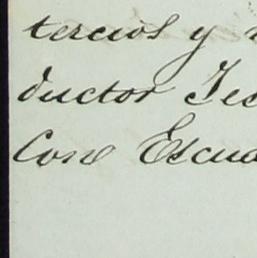 tercios y
ductor Tes
Cone Escua